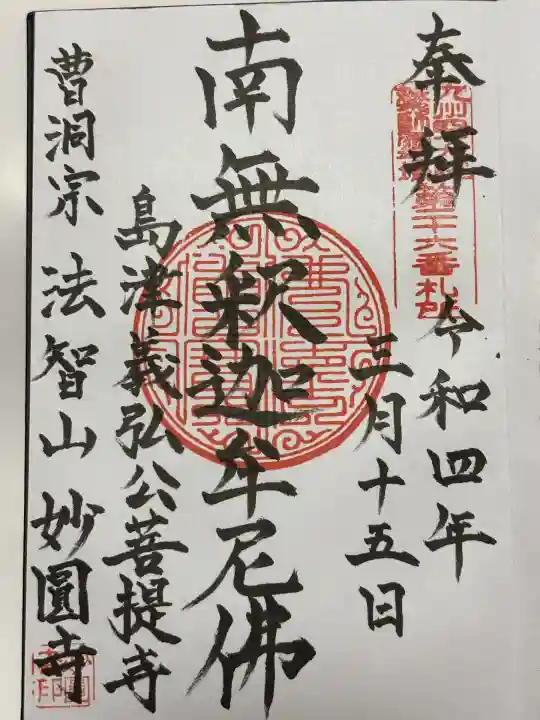 奉拜
令和四年
三月十五日
南無釈迦牟尼佛
島津義弘公菩提寺
曹洞宗 法智山 妙圓寺